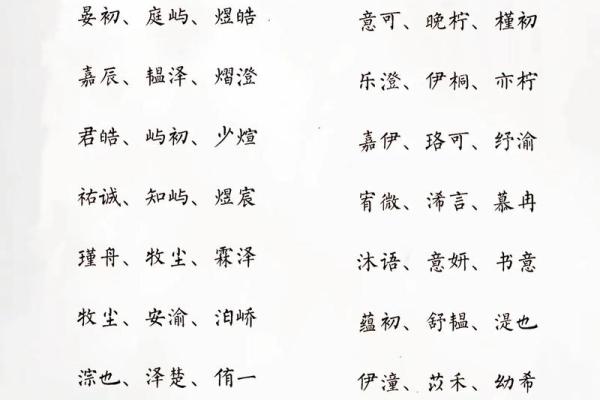 晏初、庭屿、煜皓 意可、晚柠、槿初
嘉辰、韫泽、熠澄 乐澄、伊桐、亦柠
君皓、屿初、少煊 嘉伊、珞可、纾渝
祐诚、知屿、煜宸 宥微、浠言、慕冉
瑾舟、牧尘、霖泽 沐语、意妍、书意
牧尘、安渝、泊峤 蕴初、舒韫、湜也
淙也、泽楚、侑一 伊潼、苡禾、幼希